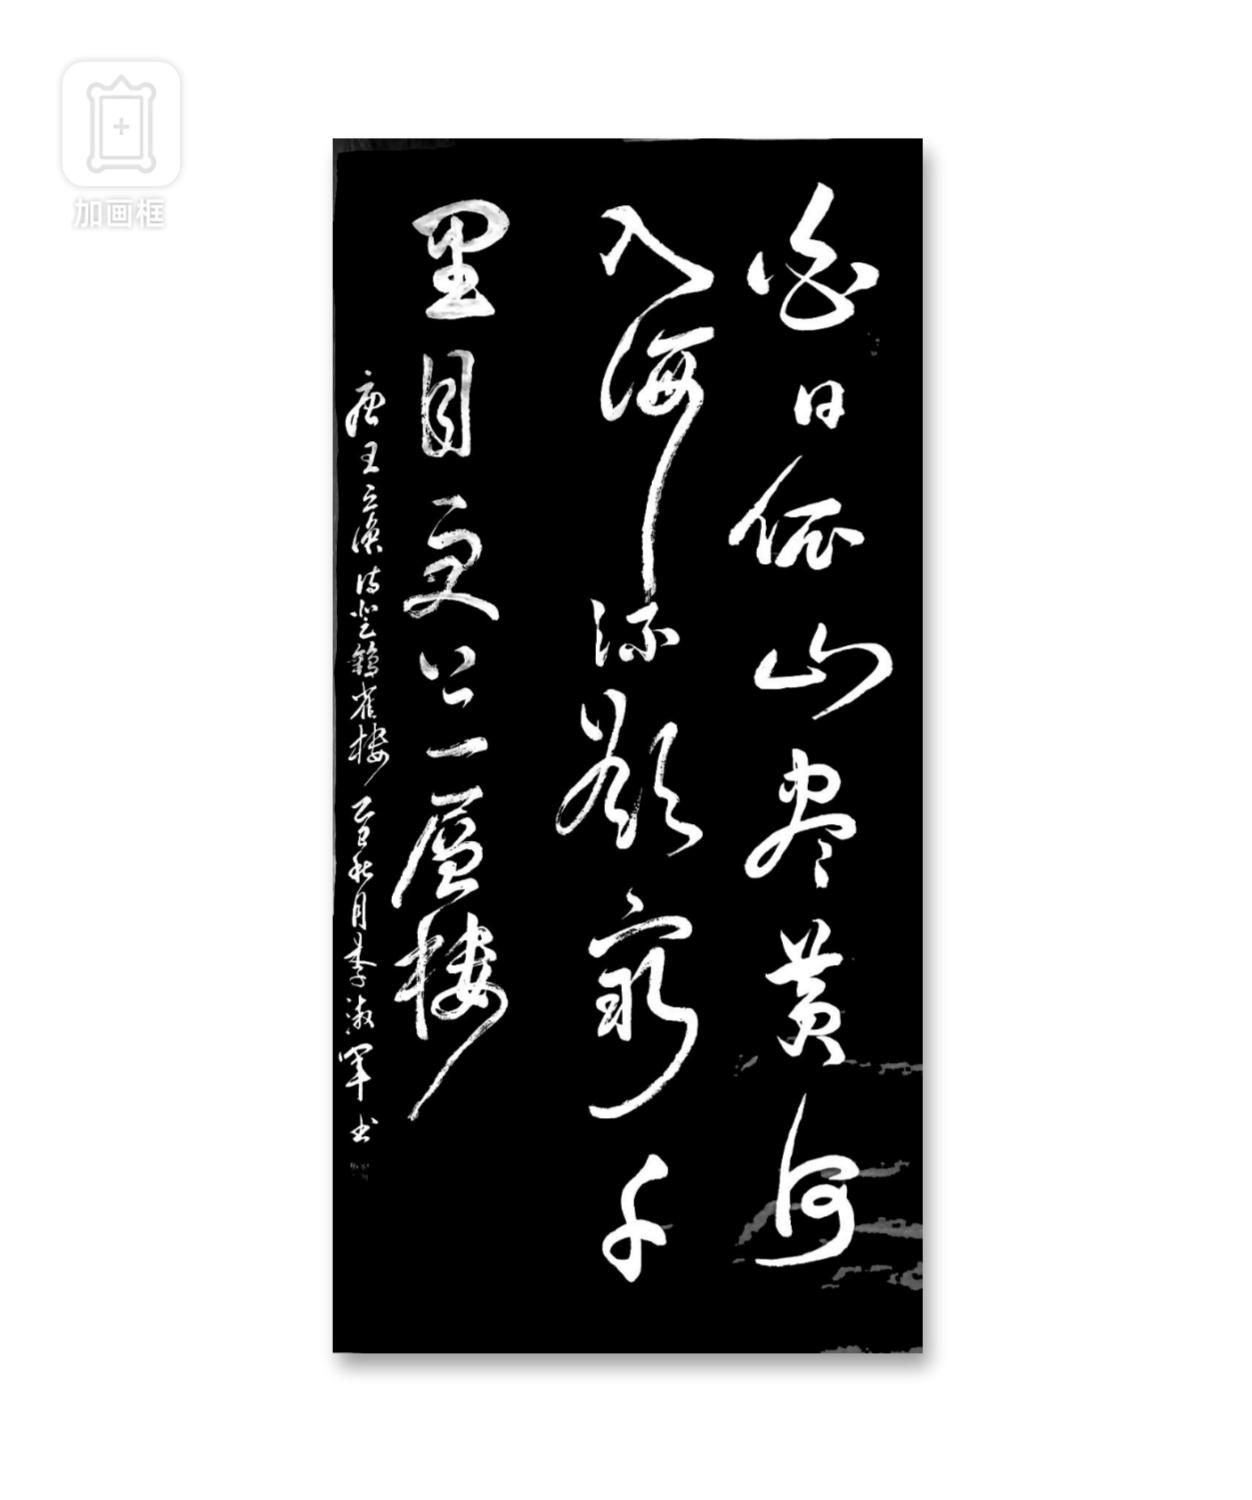 加画框
白日依山尽黄河
入海流欲穷千
里目更上一层楼
唐王之涣诗登鹳雀楼 秋月李淑军书